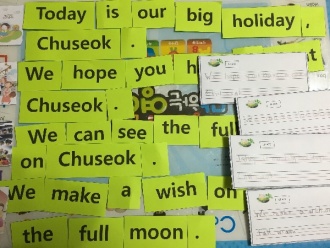 Today is our big holiday,
Chuseok.
We hope you h
Chuseok.
We can see the full
on Chuseok.
We make a wish on
the full moon.